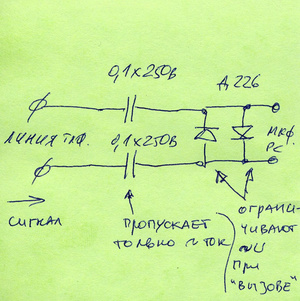 0,1х250в
Д226
ЛИНИЯ ТЛФ.
0,1х250в
МКФ.
PC
СИГНАЛ
ПРОПУСКАЕТ
ТОЛЬКО ~ ТОК
ОГРАНИ-
ЧИВАЮТ
~U
ПРИ
"ВЫЗОВЕ"